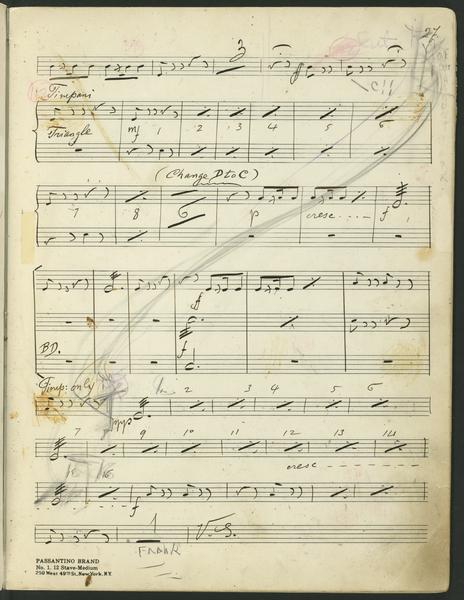 27
3
Timpani
Triangle mf 1 2 3 4 5 6
(Change D to C)
7 8 6 p cresc. f 1
ff
f
BD.
Timp: only 2 3 4 5 6
ppp
7 9 10 11 12 13 14
cresc
15 16
f
1 V.S.
FRANK
PASSANTINO BRAND
No. 1. 12 Stave-Medium
250 West 49th St., New York, N.Y.